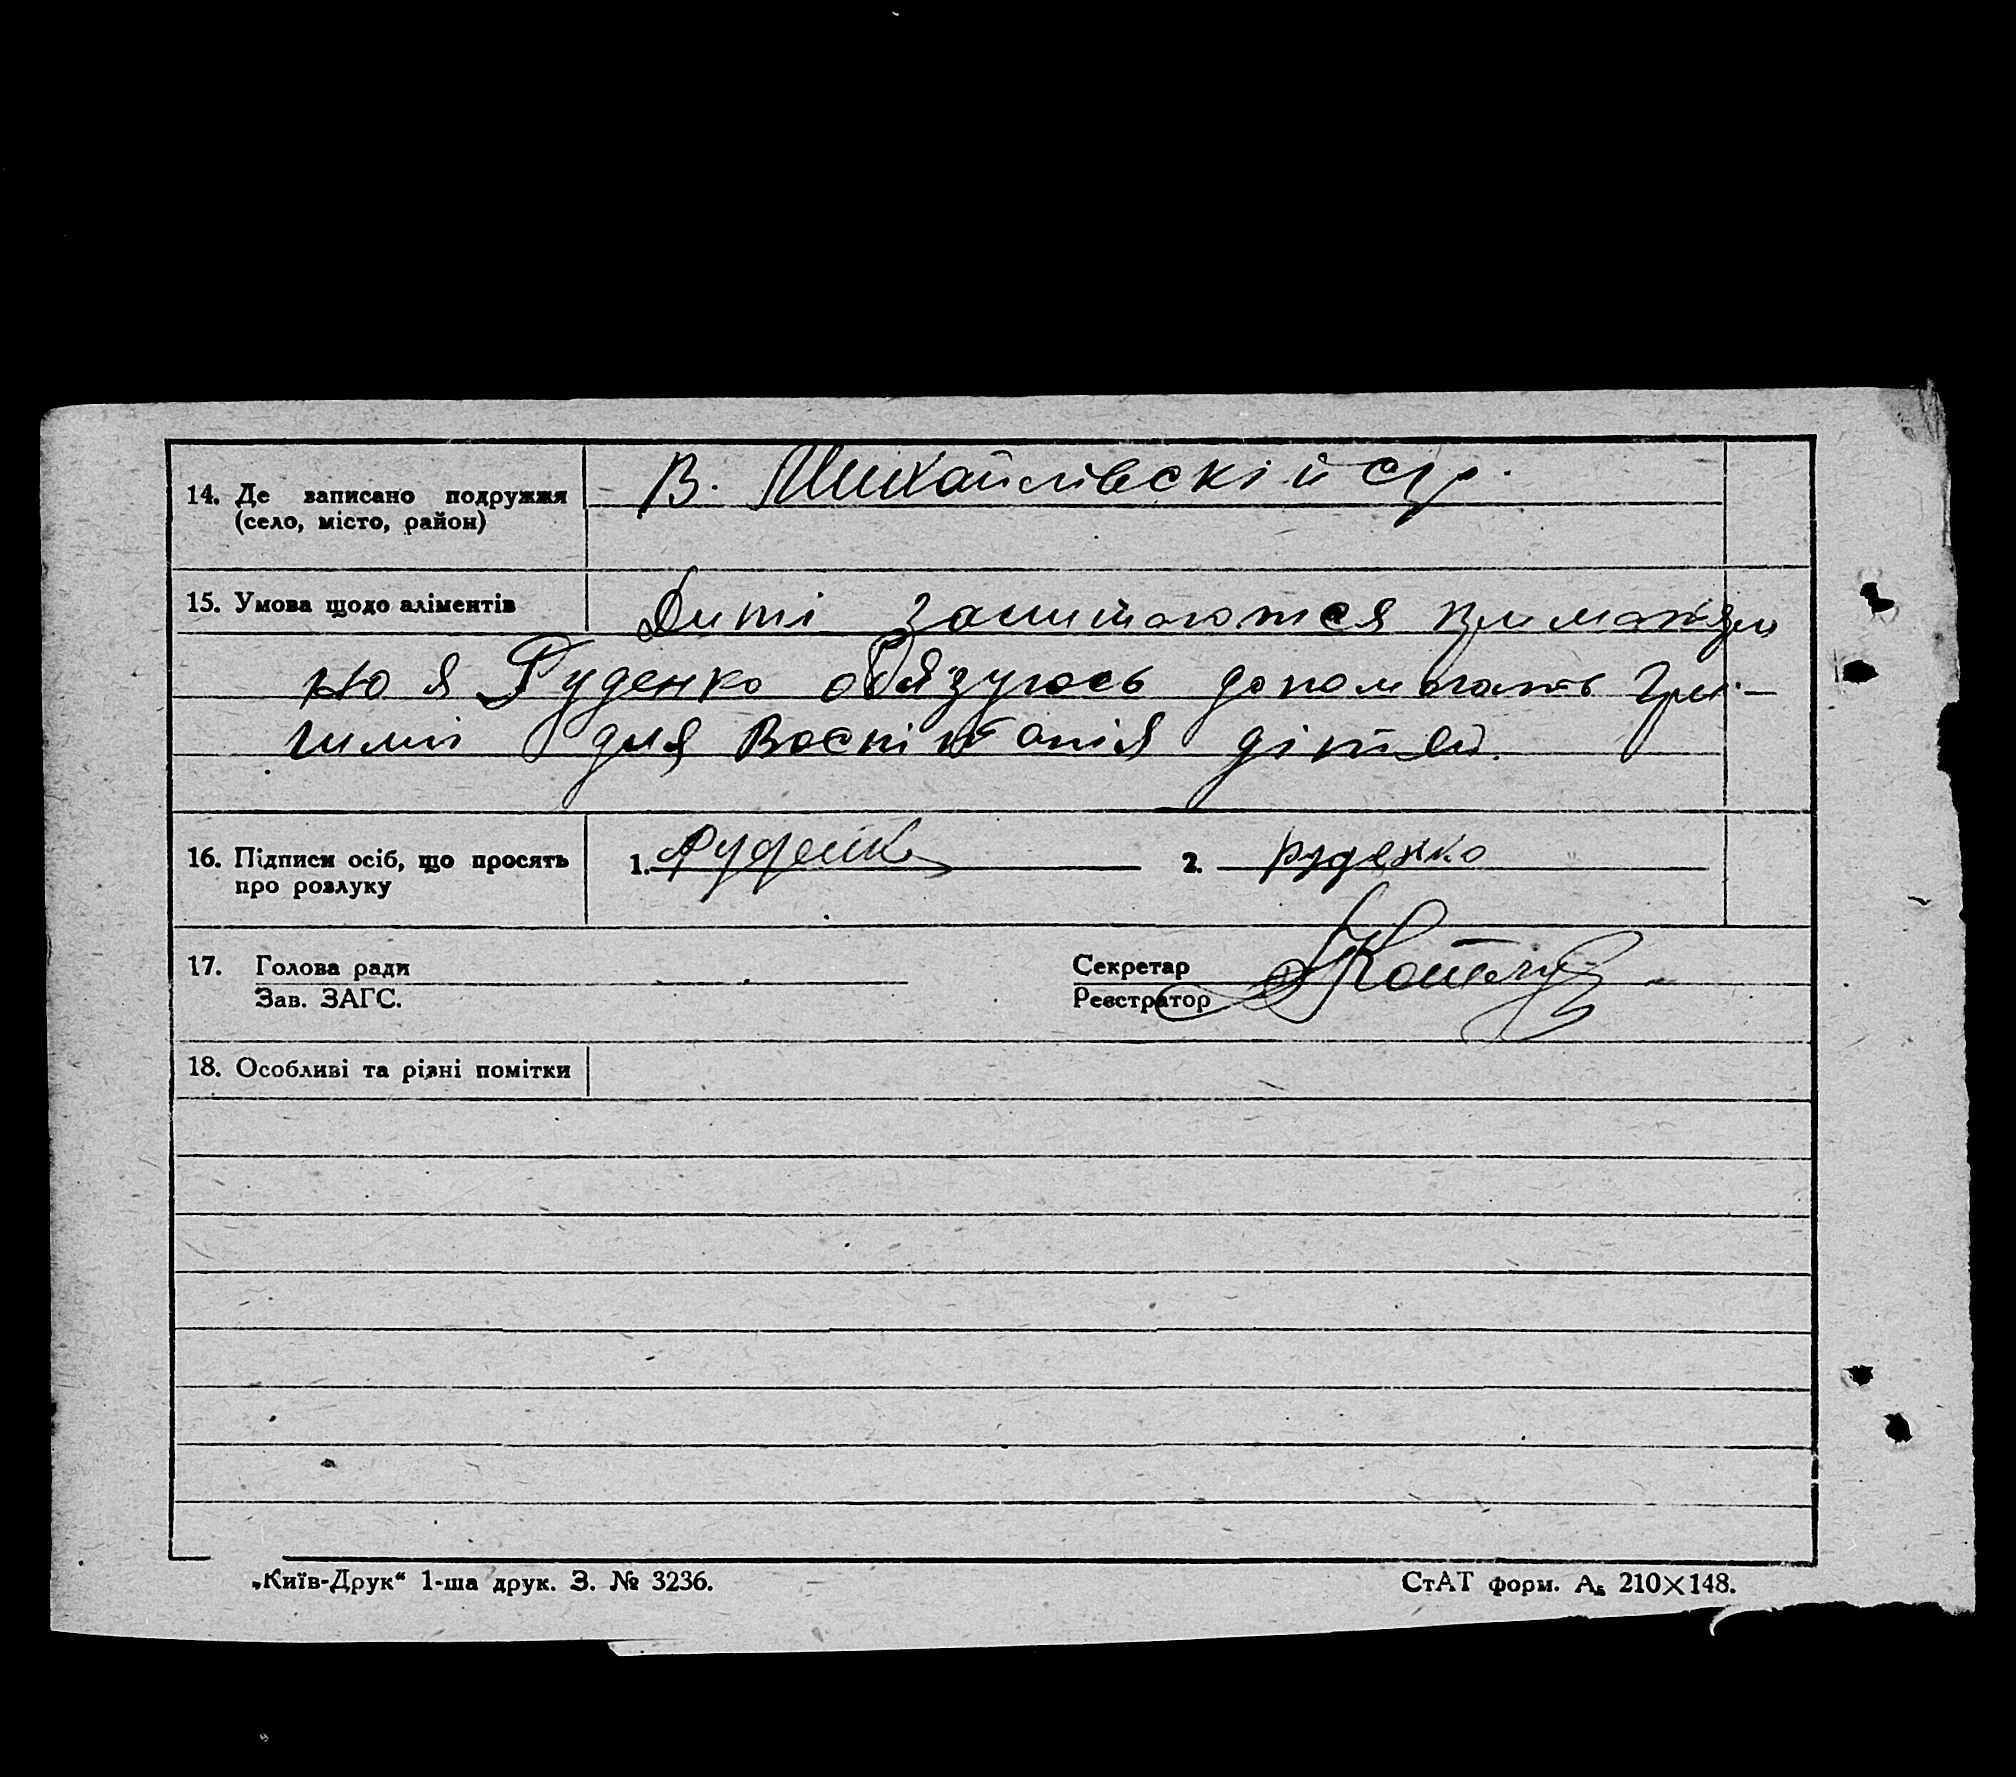 14. Де записано подружжя
(село, місто, район)
В. Михайлівскій с/р.
15. Умова щодо аліментів
Диті зашитаются при
но я Руденко обʼязуюсь допомагать гро-
шими для Воспітанія дітей.
16. Підписи осіб, що просять
про розлуку
1. Руденко
2. руденко
17. Голова ради
Зав. ЗАГС.
Секретар
Реєстратор
18. Особливі та різні помітки
„Київ-Друк“ 1-ша друк. З. № 3236.
СтАТ форм. А₅ 210×148.